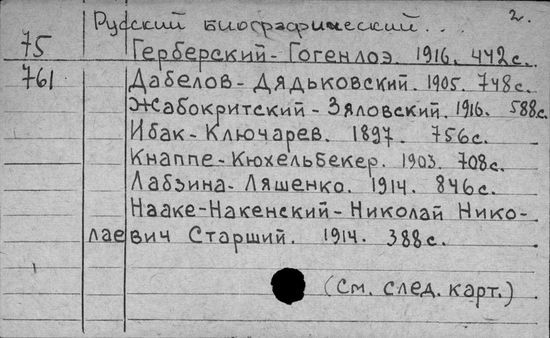 Русский биографический.. 2.
75 Герберский-Гогенлоэ. 1916. 442с.
761 Дабелов-Дядьковский. 1905. 748с.
Жабокритский-Зяловский. 1916. 588с.
Ибак-Ключарев. 1897. 756с.
Кнаппе-Кюхельбекер. 1903. 708с.
Лабзина-Ляшенко. 1914. 846с.
Нааке-Накенский-Николай Нико-
лаевич Старший. 1914. 388с.
(См. след. карт.)